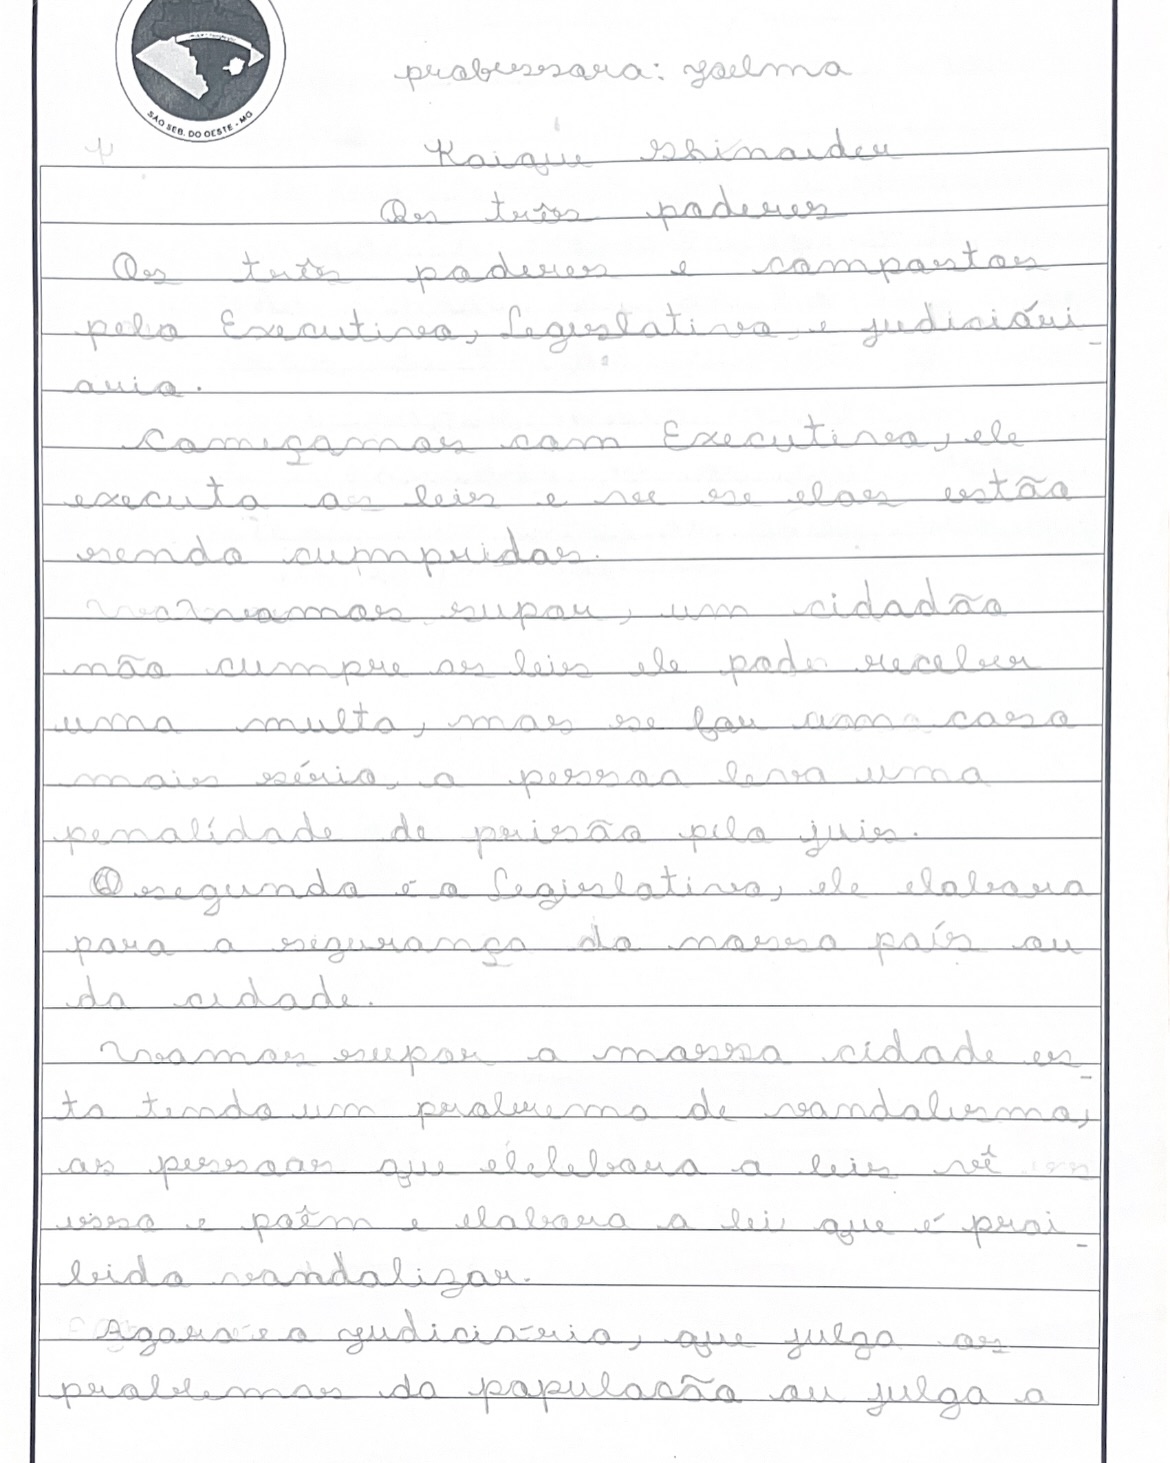 SÃO SEB. DO OESTE - MG
professora: Joelma
Kaique
Os três poderes
Os três poderes e compostos
pelo Executivo, Legislativo e judiciári
ario.
Começamos com Executivo, ele
executa as leis e vee se elas estão
sendo cumpridas.
vamos supor, um cidadão
não cumpre as leis ele pode receber
uma multa, mas se for uma caso
mais sério, a pessoa leva uma
penalidade de prisão pelo juis.
O segundo é o Legislativo, ele elabora
para a segurança do nosso país ou
da cidade.
Vamos supor a nossa cidade es-
ta tendo um probrema de vandalismo,
as pessoas que elelebora a leis vê
isso e poêm e elabora a lei que é proi-
bido vandalizar.
Agora e o judiciário, que julga os
problemas da população ou julga o